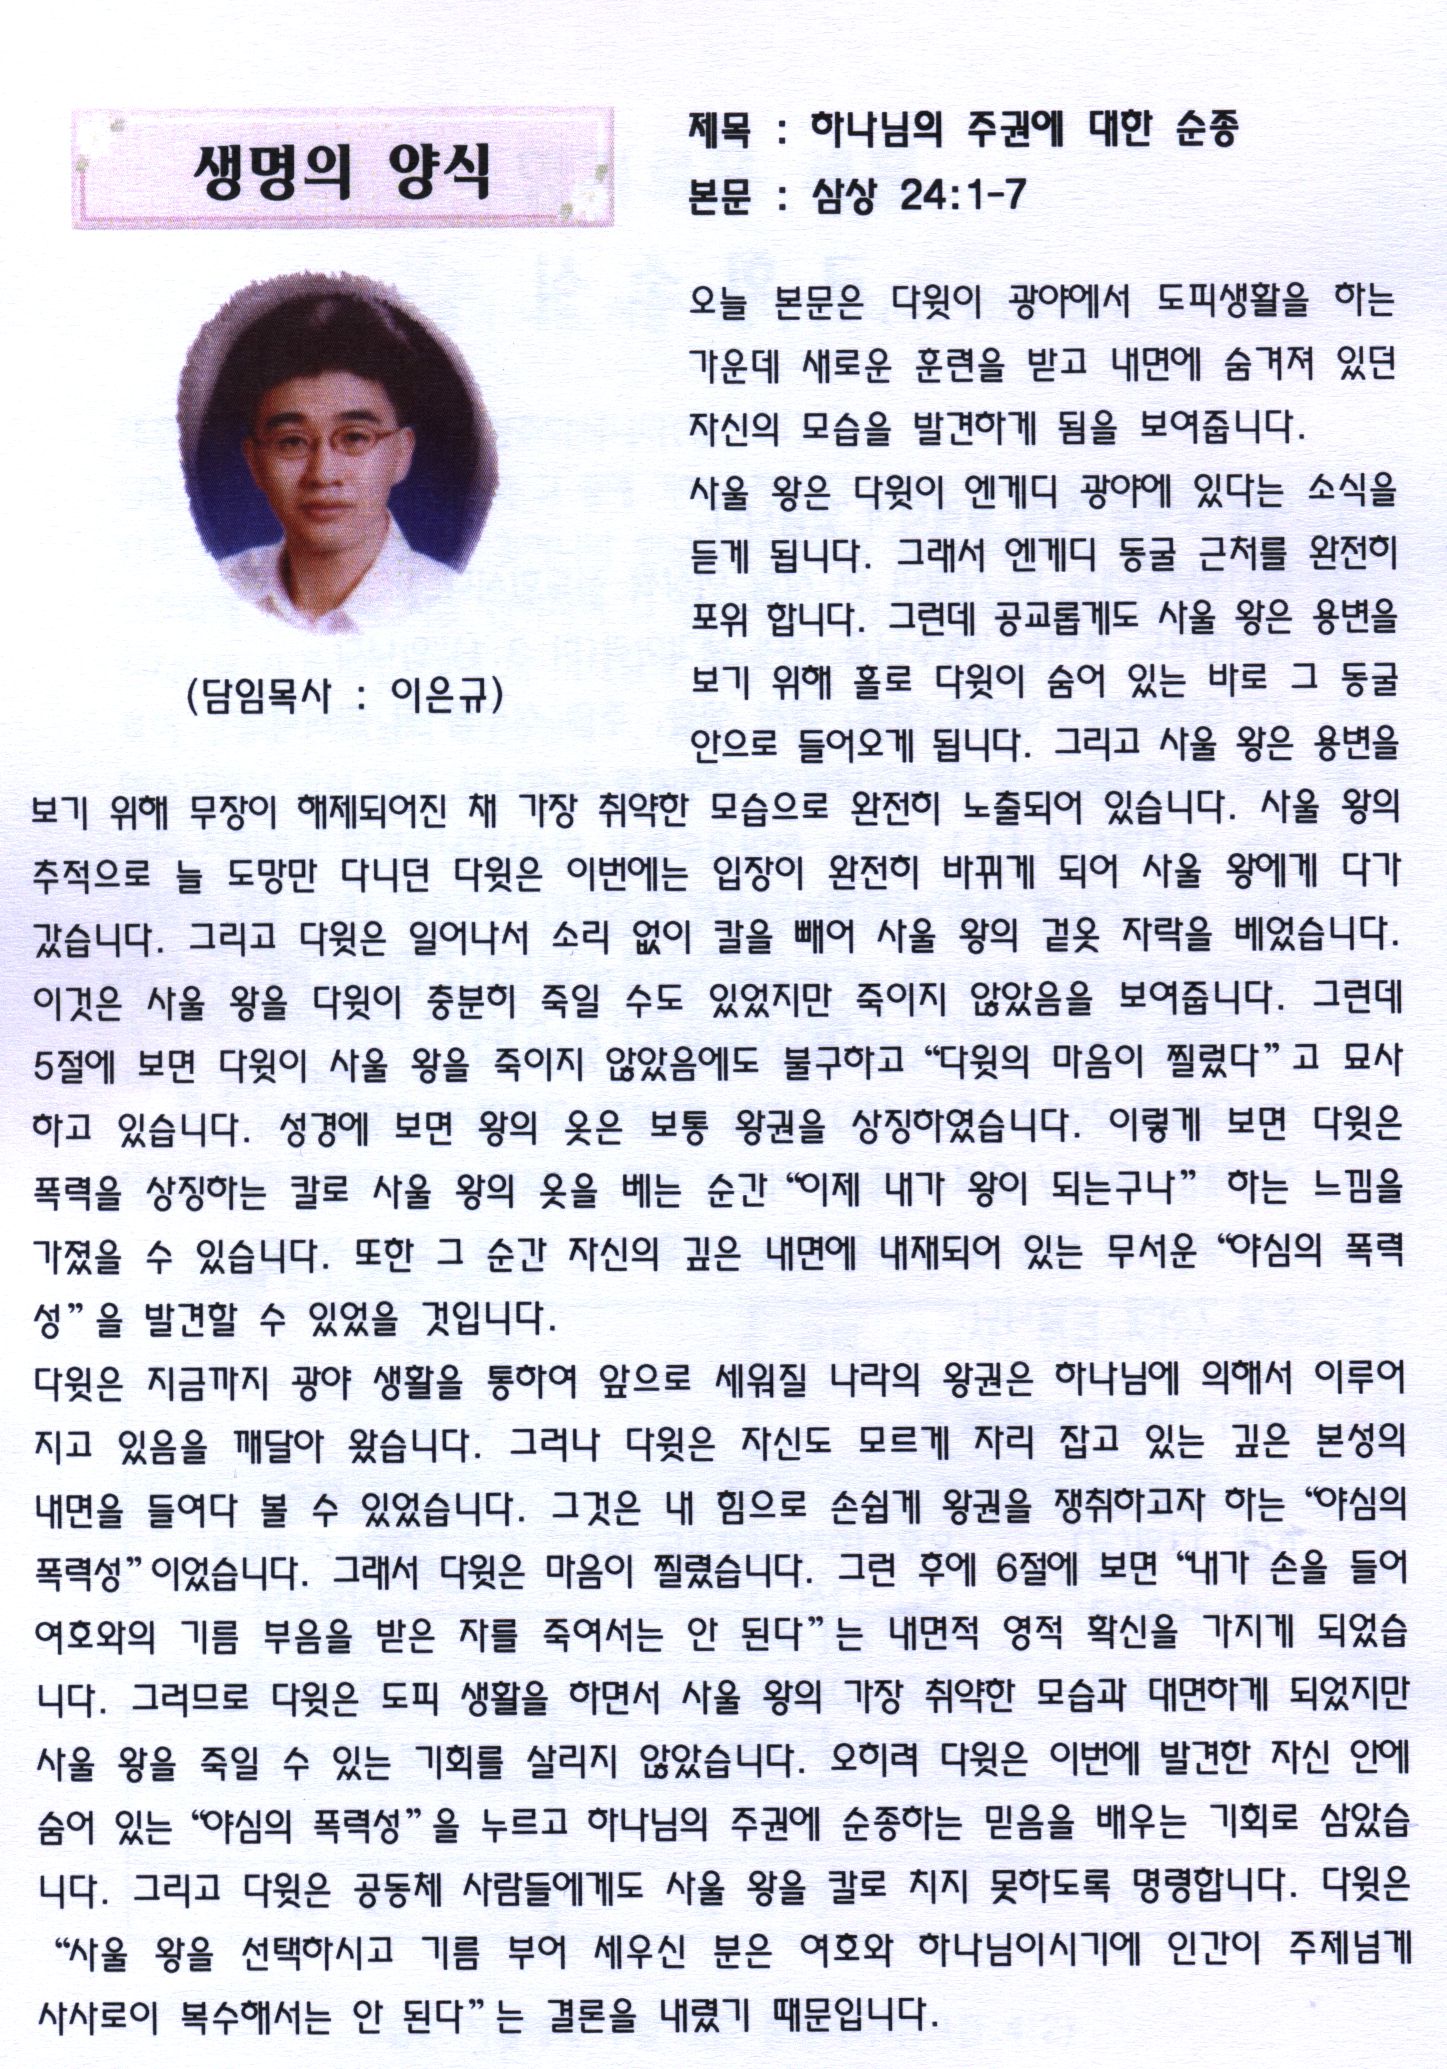 생명의 양식
제목 : 하나님의 주권에 대한 순종
본문 : 삼상 24:1-7
(담임목사 : 이은규)
오늘 본문은 다윗이 광야에서 도피생활을 하는
가운데 새로운 훈련을 받고 내면에 숨겨져 있던
자신의 모습을 발견하게 됨을 보여줍니다.
사울 왕은 다윗이 엔게디 광야에 있다는 소식을
듣게 됩니다. 그래서 엔게디 동굴 근처를 완전히
포위 합니다. 그런데 공교롭게도 사울 왕은 용변을
보기 위해 홀로 다윗이 숨어 있는 바로 그 동굴
안으로 들어오게 됩니다. 그리고 사울 왕은 용변을
보기 위해 무장이 해제되어진 채 가장 취약한 모습으로 완전히 노출되어 있습니다. 사울 왕의
추적으로 늘 도망만 다니던 다윗은 이번에는 입장이 완전히 바뀌게 되어 사울 왕에게 다가
갔습니다. 그리고 다윗은 일어나서 소리 없이 칼을 빼어 사울 왕의 겉옷 자락을 베었습니다.
이것은 사울 왕을 다윗이 충분히 죽일 수도 있었지만 죽이지 않았음을 보여줍니다. 그런데
5절에 보면 다윗이 사울 왕을 죽이지 않았음에도 불구하고 “다윗의 마음이 찔렸다”고 묘사
하고 있습니다. 성경에 보면 왕의 옷은 보통 왕권을 상징하였습니다. 이렇게 보면 다윗은
폭력을 상징하는 칼로 사울 왕의 옷을 베는 순간 “이제 내가 왕이 되는구나” 하는 느낌을
가졌을 수 있습니다. 또한 그 순간 자신의 깊은 내면에 내재되어 있는 무서운 “야심의 폭력
성”을 발견할 수 있었을 것입니다.
다윗은 지금까지 광야 생활을 통하여 앞으로 세워질 나라의 왕권은 하나님에 의해서 이루어
지고 있음을 깨달아 왔습니다. 그러나 다윗은 자신도 모르게 자리 잡고 있는 깊은 본성의
내면을 들여다 볼 수 있었습니다. 그것은 내 힘으로 손쉽게 왕권을 쟁취하고자 하는 “야심의
폭력성”이었습니다. 그래서 다윗은 마음이 찔렸습니다. 그런 후에 6절에 보면 “내가 손을 들어
여호와의 기름 부음을 받은 자를 죽여서는 안 된다”는 내면적 영적 확신을 가지게 되었습
니다. 그러므로 다윗은 도피 생활을 하면서 사울 왕의 가장 취약한 모습과 대면하게 되었지만
사울 왕을 죽일 수 있는 기회를 살리지 않았습니다. 오히려 다윗은 이번에 발견한 자신 안에
숨어 있는 “야심의 폭력성”을 누르고 하나님의 주권에 순종하는 믿음을 배우는 기회로 삼았습
니다. 그리고 다윗은 공동체 사람들에게도 사울 왕을 칼로 치지 못하도록 명령합니다. 다윗은
“사울 왕을 선택하시고 기름 부어 세우신 분은 여호와 하나님이시기에 인간이 주제넘게
사사로이 복수해서는 안 된다”는 결론을 내렸기 때문입니다.